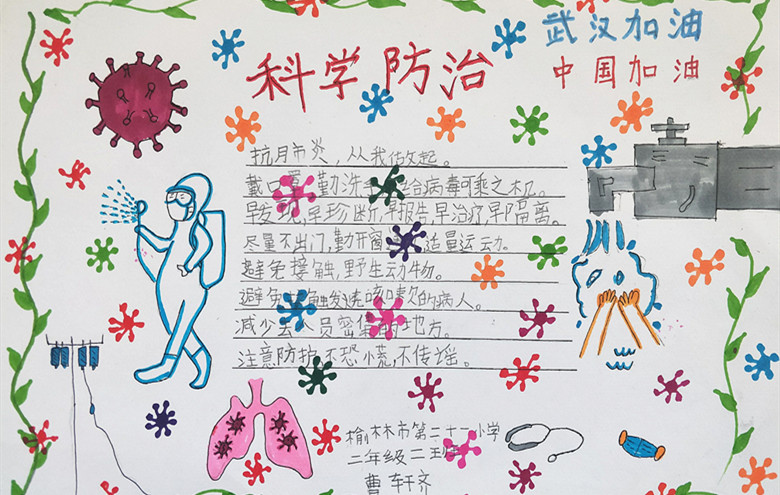 科学防治
武汉加油
中国加油
抗月市炎，从我做起。
戴口罩 勤洗手 给病毒可乘之机。
早发现，早珍断，早报告，早治疗，早隔离。
尽量不出门，勤开窗 适量运动。
避免接触，野生动物。
避免 触发烧咳嗽的病人。
减少去人员密集的地方。
注意防护 不恐慌，不传谣。
榆林市第二十一小学
二年级二班
曹轩齐